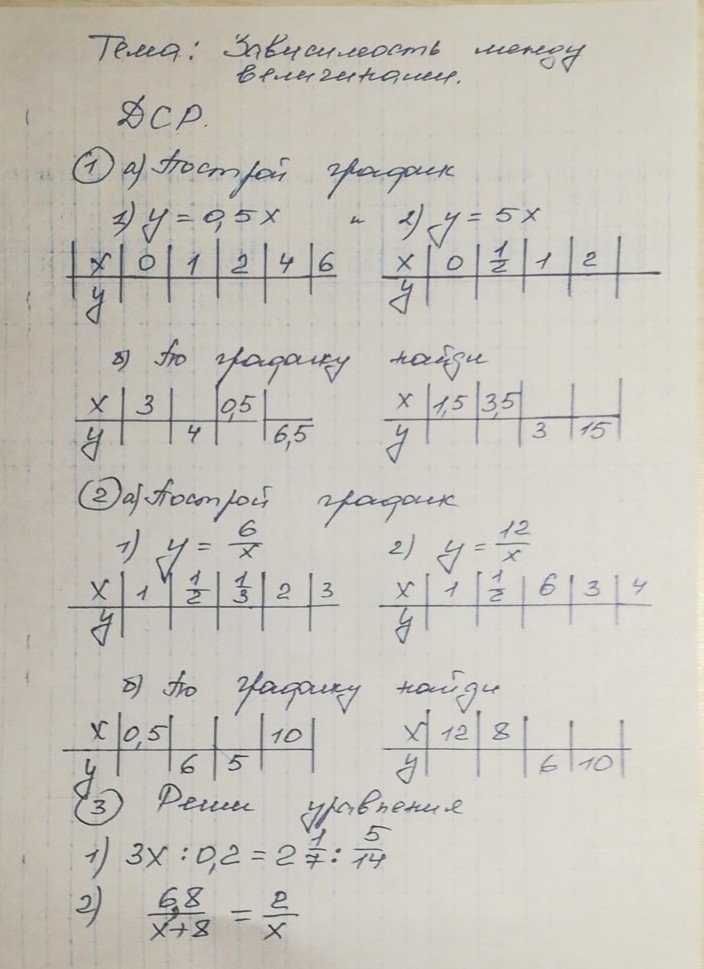 Тема: Зависимость между
величинами.
ДСР.
① а) Построй график
1) y = 0,5x и 2) y = 5x
x | 0 | 1 | 2 | 4 | 6
y
x | 0 | 1/2 | 1 | 2 |
y
б) По графику найди
x | 3 | | 0,5 |
y | | 4 | | 6,5
x | 1,5 | 3,5 | | |
y | | | 3 | 15 |
② а) Построй график
1) y = 6/x 2) y = 12/x
x | 1 | 1/2 | 1/3 | 2 | 3
y
x | 1 | 1/2 | 6 | 3 | 4
y
б) По графику найди
x | 0,5 | | | 10 |
y | | 6 | 5 | |
x | 12 | 8 | | |
y | | | 6 | 10 |
③ Реши уравнения
1) 3x : 0,2 = 2 1/7 : 5/14
2) 6,8/(x+8) = 2/x